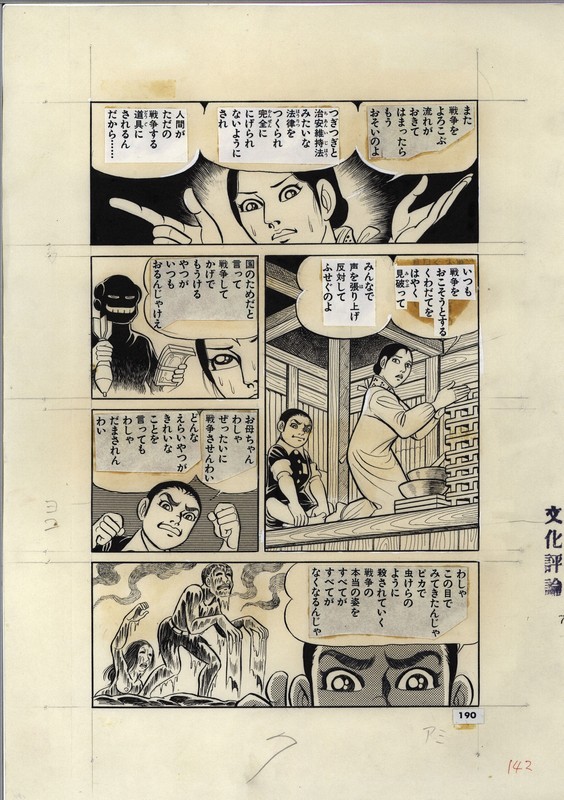 また
戦争を
よろこぶ
流れが
おきて
はまったら
もう
おそいのよ
つぎつぎと
治安維持法
みたいな
法律を
つくられ
完全に
にげられ
ないように
され
人間が
ただの
戦争する
道具に
されるん
だから……
いつも
戦争を
おこそうとする
くわだてを
はやく
見破って
みんなで
声を張り上げ
反対して
ふせぐのよ
国のためだと
言って
戦争して
かげで
もうける
やつが
いつも
おるんじゃけえ
お母ちゃん
わしゃ
ぜったいに
戦争させんわい
どんな
えらいやつが
きれいな
ことを
言っても
わしゃ
だまされん
わい
わしゃ
この目で
みてきたんじゃ
ピカで
虫けらの
ように
殺されていく
戦争の
本当の姿を
すべてが
すべてが
なくなるんじゃ
190
文化評論
アミ
142